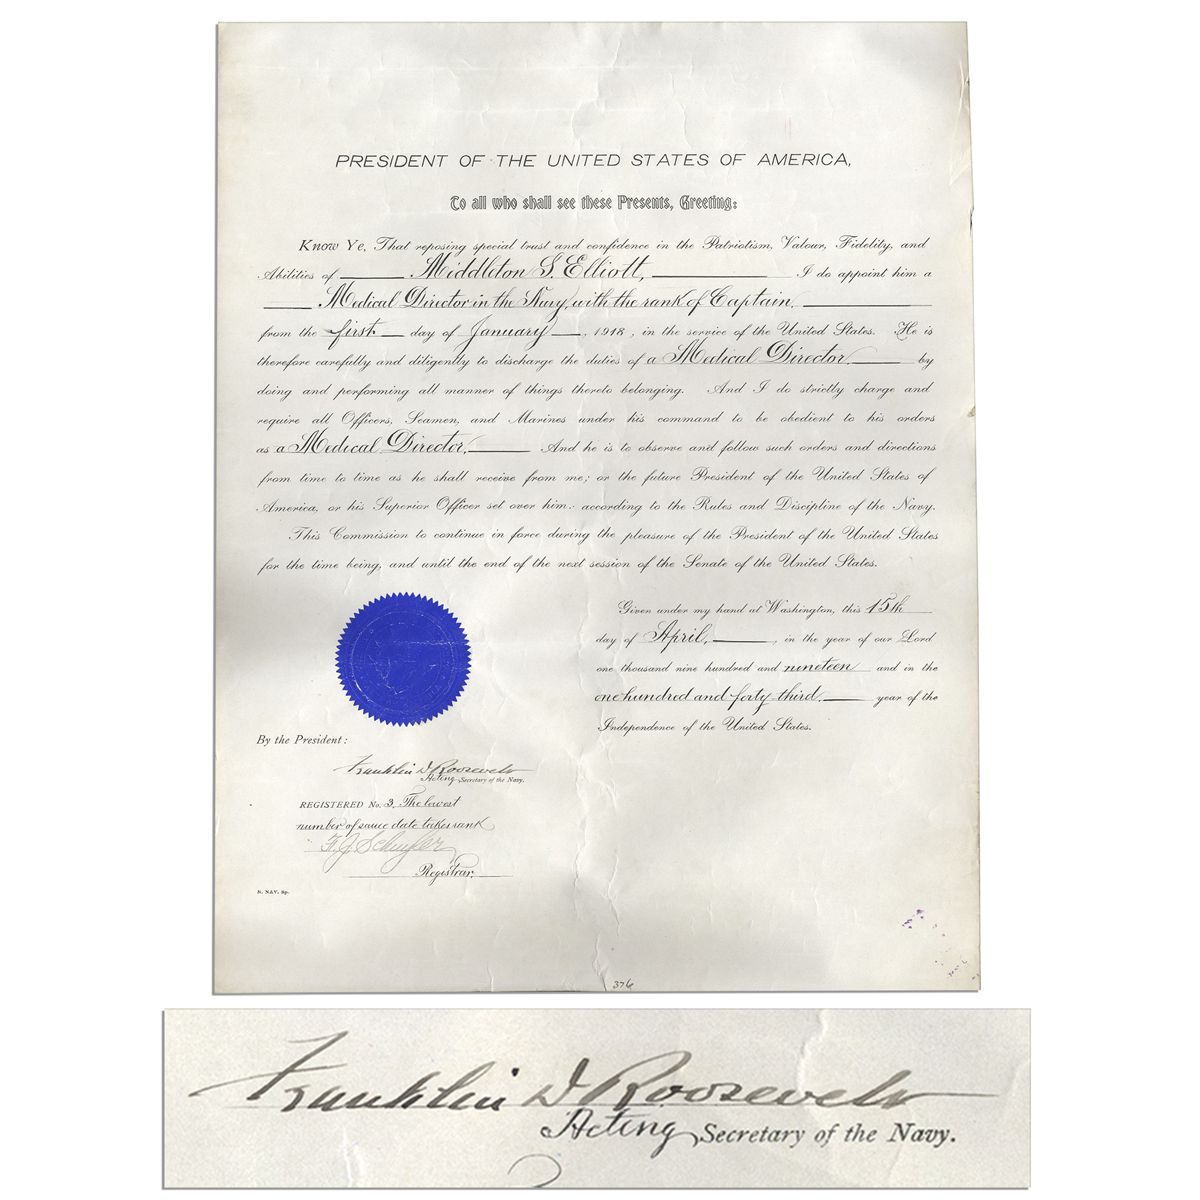 PRESIDENT OF THE UNITED STATES OF AMERICA,
To all who shall see these Presents, Greeting:
Know Ye, That reposing special trust and confidence in the Patriotism, Valour, Fidelity, and
Abilities of Middleton S. Elliott, I do appoint him a
Medical Director in the Navy, with the rank of Captain,
from the first day of January, 1918, in the service of the United States. He is
therefore carefully and diligently to discharge the duties of a Medical Director by
doing and performing all manner of things thereto belonging. And I do strictly charge and
require all Officers, Seamen, and Marines under his command to be obedient to his orders
as a Medical Director, And he is to observe and follow such orders and directions
from time to time as he shall receive from me; or the future President of the United States of
America, or his Superior Officer set over him: according to the Rules and Discipline of the Navy.
This Commission to continue in force during the pleasure of the President of the United States
for the time being, and until the end of the next session of the Senate of the United States.
Given under my hand at Washington, this 15th
day of April, in the year of our Lord
one thousand nine hundred and nineteen and in the
one hundred and forty third. year of the
Independence of the United States.
By the President:
Franklin D Roosevelt
Acting Secretary of the Navy.
REGISTERED No. 3. The lowest
number of same date takes rank
Registrar.
N. NAV. Sp.
376
Franklin D Roosevelt
Acting Secretary of the Navy.